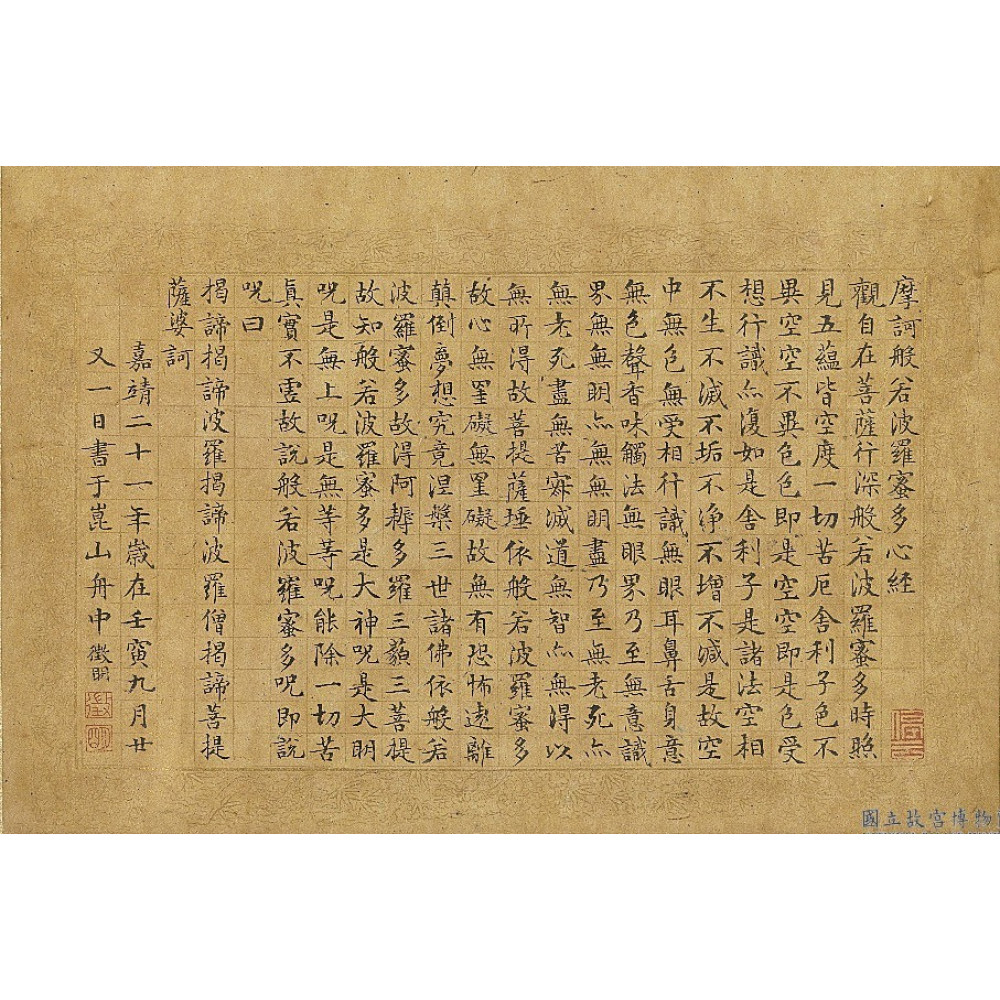 摩訶般若波羅蜜多心経
觀自在菩薩行深般若波羅蜜多時照
見五蘊皆空度一切苦厄舍利子色不
異空空不異色色即是空空即是色受
想行識亦復如是舍利子是諸法空相
不生不滅不垢不淨不增不減是故空
中無色無受相行識無眼耳鼻舌身意
無色聲香味觸法無眼界乃至無意識
界無無明亦無無明盡乃至無老死亦
無老死盡無苦寂滅道無智亦無得以
無所得故菩提薩埵依般若波羅蜜多
故心無罣礙無罣礙故無有恐怖遠離
顛倒夢想究竟涅槃三世諸佛依般若
波羅蜜多故得阿耨多羅三藐三菩提
故知般若波羅蜜多是大神呪是大明
呪是無上呪是無等等呪能除一切苦
真實不虛故說般若波羅蜜多呪即說
呪曰
揭諦揭諦波羅揭諦波羅僧揭諦菩提
薩婆訶
嘉靖二十一年歲在壬寅九月廿
又一日書于崑山舟中徵明
徵
明
國立故宮博物